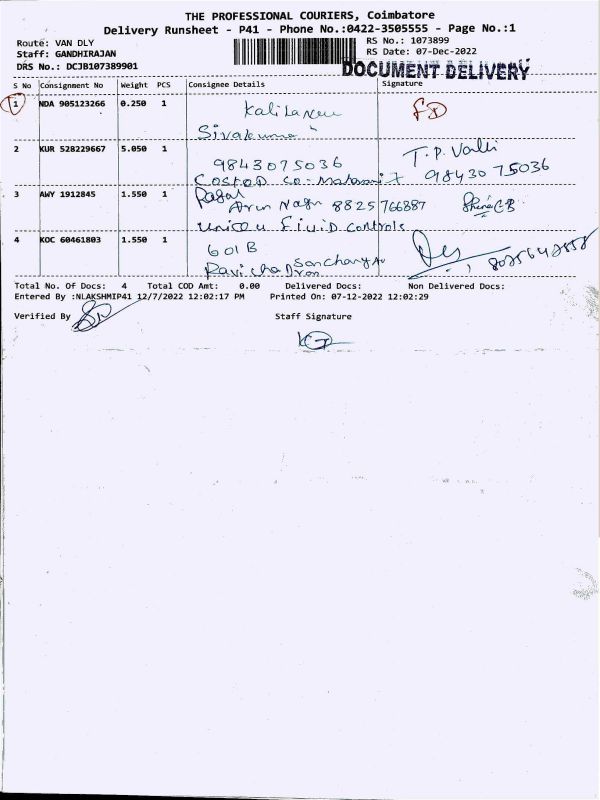 THE PROFESSIONAL COURIERS, Coimbatore
Delivery Runsheet - P41 - Phone No.:0422-3505555 - Page No.:1
Route: VAN DLY
Staff: GANDHIRAJAN
DRS No.: DCJB107389901
RS No.: 1073899
RS Date: 07-Dec-2022
DOCUMENT DELIVERY
S No Consignment No Weight PCS Consignee Details Signature
1 NDA 905123266 0.250 1
2 KUR 528229667 5.050 1 T.P. Valli
9843075036 98430 75036
3 AWY 1912845 1.550 1
Arun Nagar 8825766887
4 KOC 60461803 1.550 1
601B
Total No. Of Docs: 4 Total COD Amt: 0.00 Delivered Docs: Non Delivered Docs:
Entered By :NLAKSHMIP41 12/7/2022 12:02:17 PM Printed On: 07-12-2022 12:02:29
Verified By Staff Signature